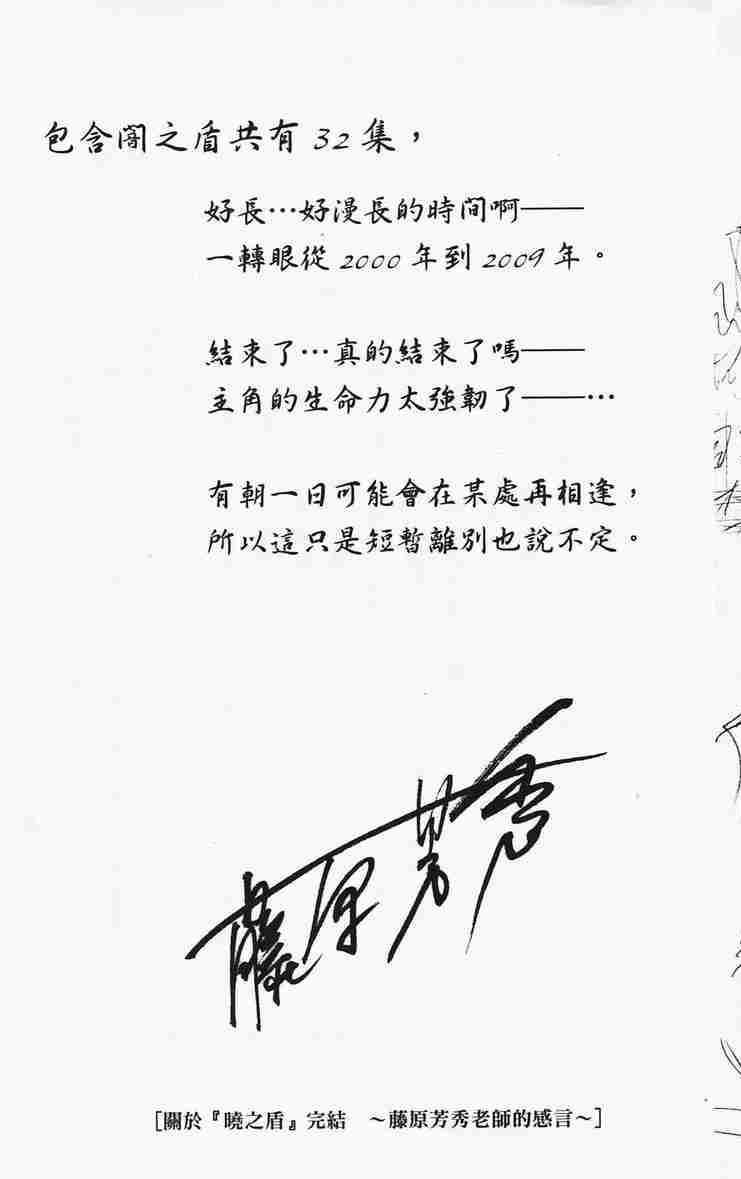 包含闇之盾共有32集，
好長…好漫長的時間啊——
一轉眼從2000年到2009年。
結束了…真的結束了嗎——
主角的生命力太強韌了——…
有朝一日可能會在某處再相逢，
所以這只是短暫離別也說不定。
藤原芳秀
[關於『曉之盾』完結　～藤原芳秀老師的感言～]